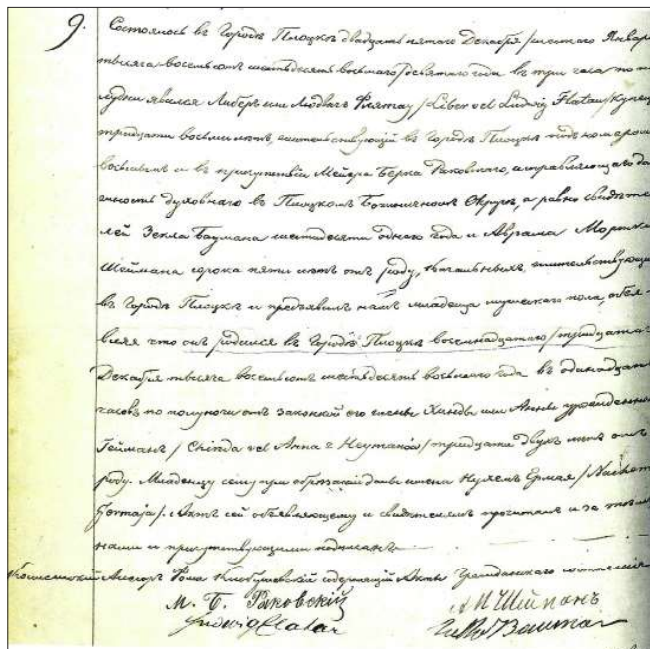 9. Состоялось въ Городѣ Плоцкѣ двадцать пятаго Декабря /шестаго Января
тысяча восемьсотъ шестьдесятъ восьмаго/девятаго года въ три часа по по-
лудни явился Либеръ или Людвигъ Флятау /Liber vel Ludwig Flatau/ Купецъ
тридцати восьми лѣтъ, жительствующій въ Городѣ Плоцкѣ подъ номеромъ
восьмымъ и въ присутствіи Мейера Берка Раковскаго, исправляющаго дол-
жность духовнаго въ Плоцкомъ Божничномъ Округѣ, а равно свидѣте-
лей Зекла Баумана шестидесяти одного года и Аврама
Шеймана сорока пяти лѣтъ отъ роду, жительствующихъ
въ Городѣ Плоцкѣ и предъявилъ намъ младенца мужескаго пола, объя-
вляя что онъ родился въ Городѣ Плоцкѣ восемнадцатаго /тридцатаго
Декабря тысяча восемьсотъ шестьдесятъ восьмаго года въ одинадцать
часовъ по полуночи отъ законной его жены Хинды или Анны урожденной
Гейманъ / Chinda vel Anna z Heymanów / тридцати двухъ лѣтъ отъ
роду. Младенцу сему при обрѣзаніи даны имена Нухемъ Ермая / Nachem
Jermaja/. Актъ сей объявляющему и свидѣтелямъ прочитанъ и за тѣмъ
нами и присутствующими подписанъ
Ассесоръ содержащій Акты Гражданскаго состоянія
М. Б. Раковскій
Ludwig Flatau